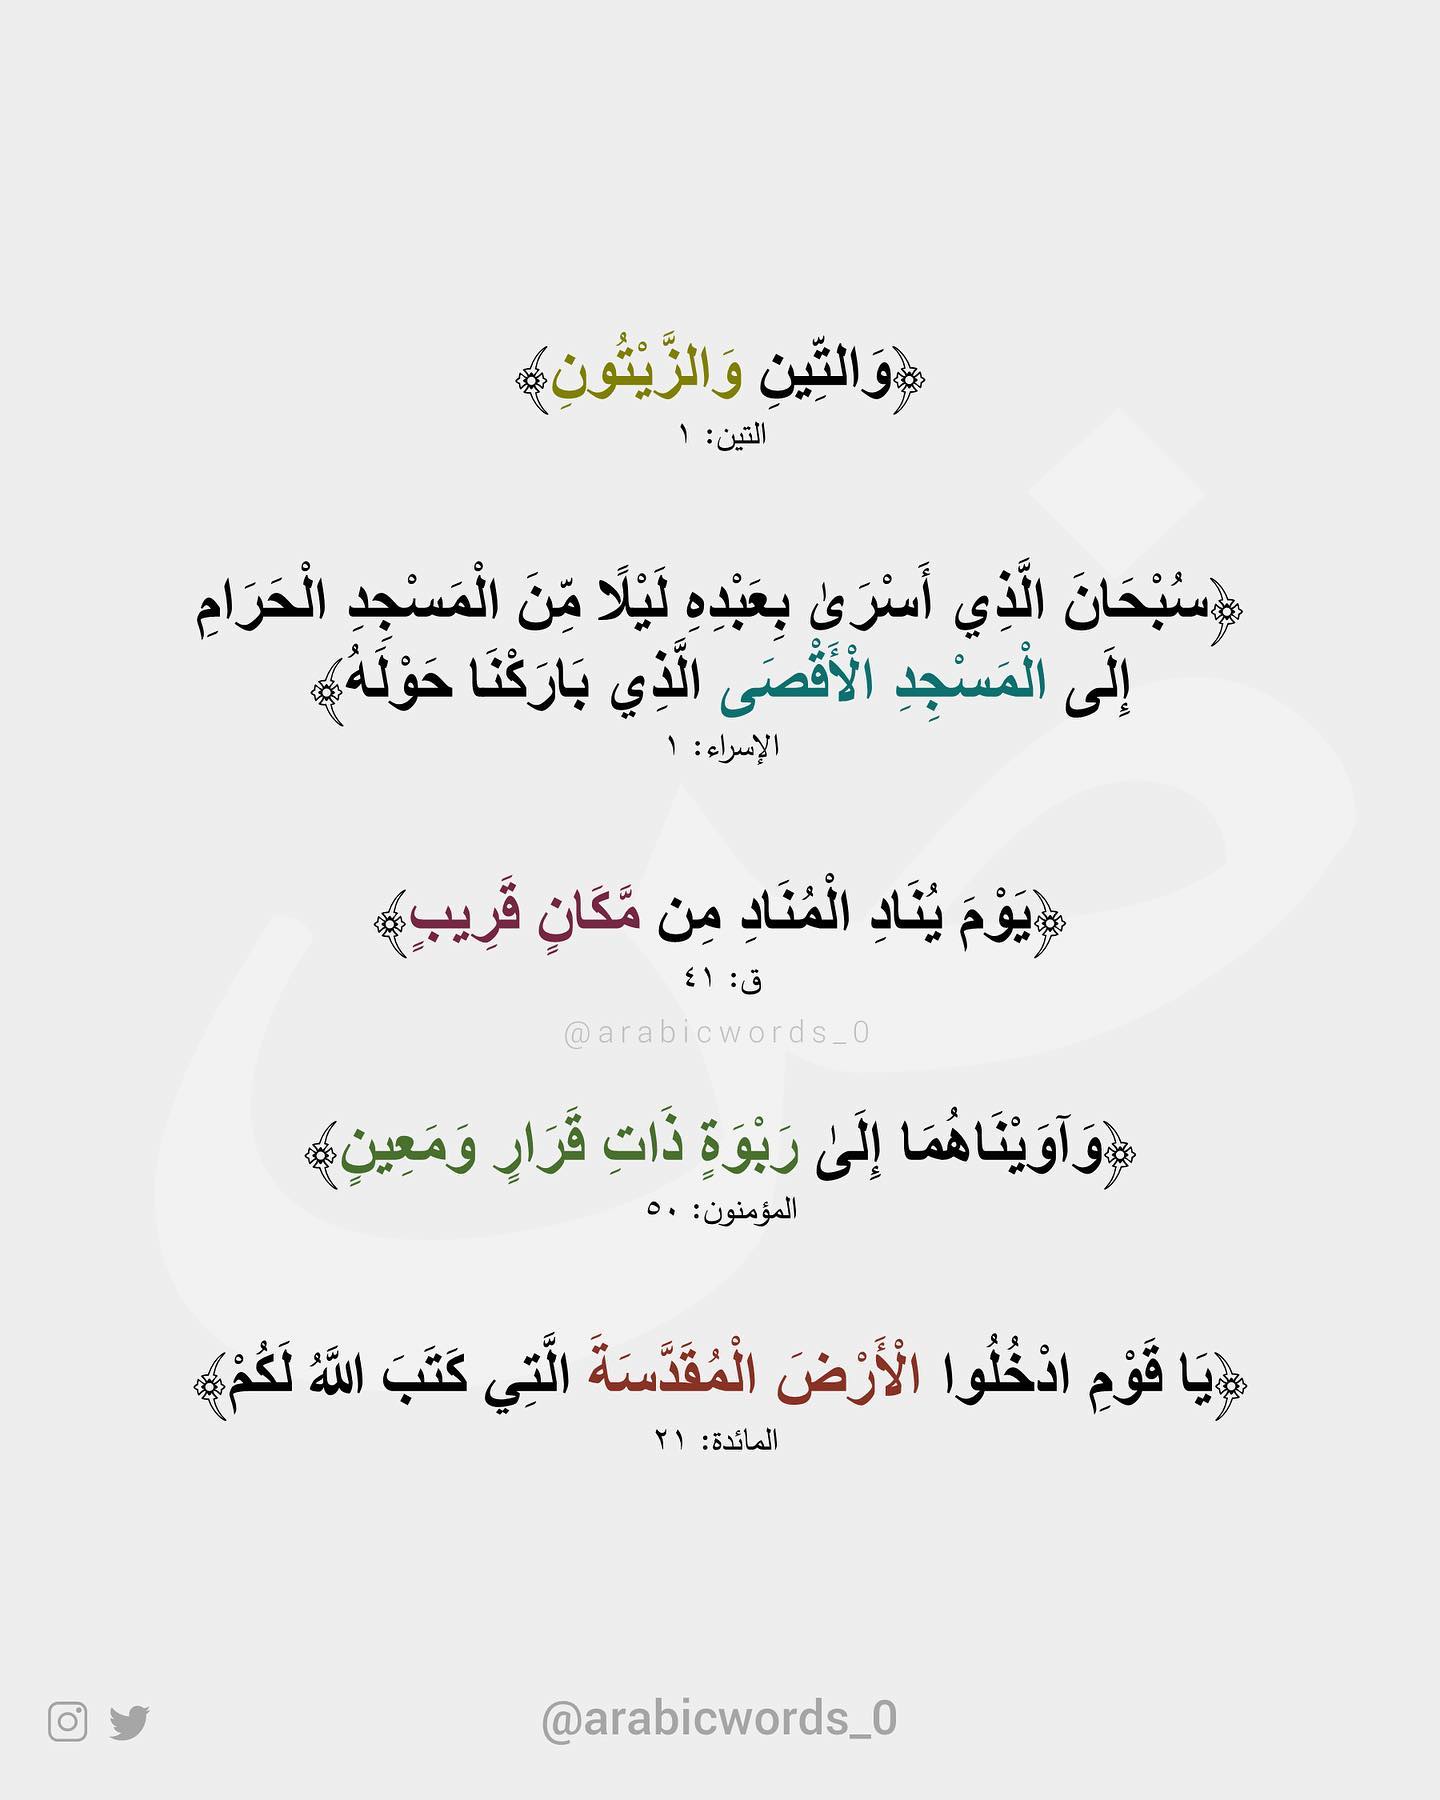 ﴿وَالتِّينِ وَالزَّيْتُونِ﴾
التين: ١
﴿سُبْحَانَ الَّذِي أَسْرَىٰ بِعَبْدِهِ لَيْلًا مِّنَ الْمَسْجِدِ الْحَرَامِ
إِلَى الْمَسْجِدِ الْأَقْصَى الَّذِي بَارَكْنَا حَوْلَهُ﴾
الإسراء: ١
﴿يَوْمَ يُنَادِ الْمُنَادِ مِن مَّكَانٍ قَرِيبٍ﴾
ق: ٤١
@arabicwords_0
﴿وَآوَيْنَاهُمَا إِلَىٰ رَبْوَةٍ ذَاتِ قَرَارٍ وَمَعِينٍ﴾
المؤمنون: ٥٠
﴿يَا قَوْمِ ادْخُلُوا الْأَرْضَ الْمُقَدَّسَةَ الَّتِي كَتَبَ اللَّهُ لَكُمْ﴾
المائدة: ٢١
@arabicwords_0